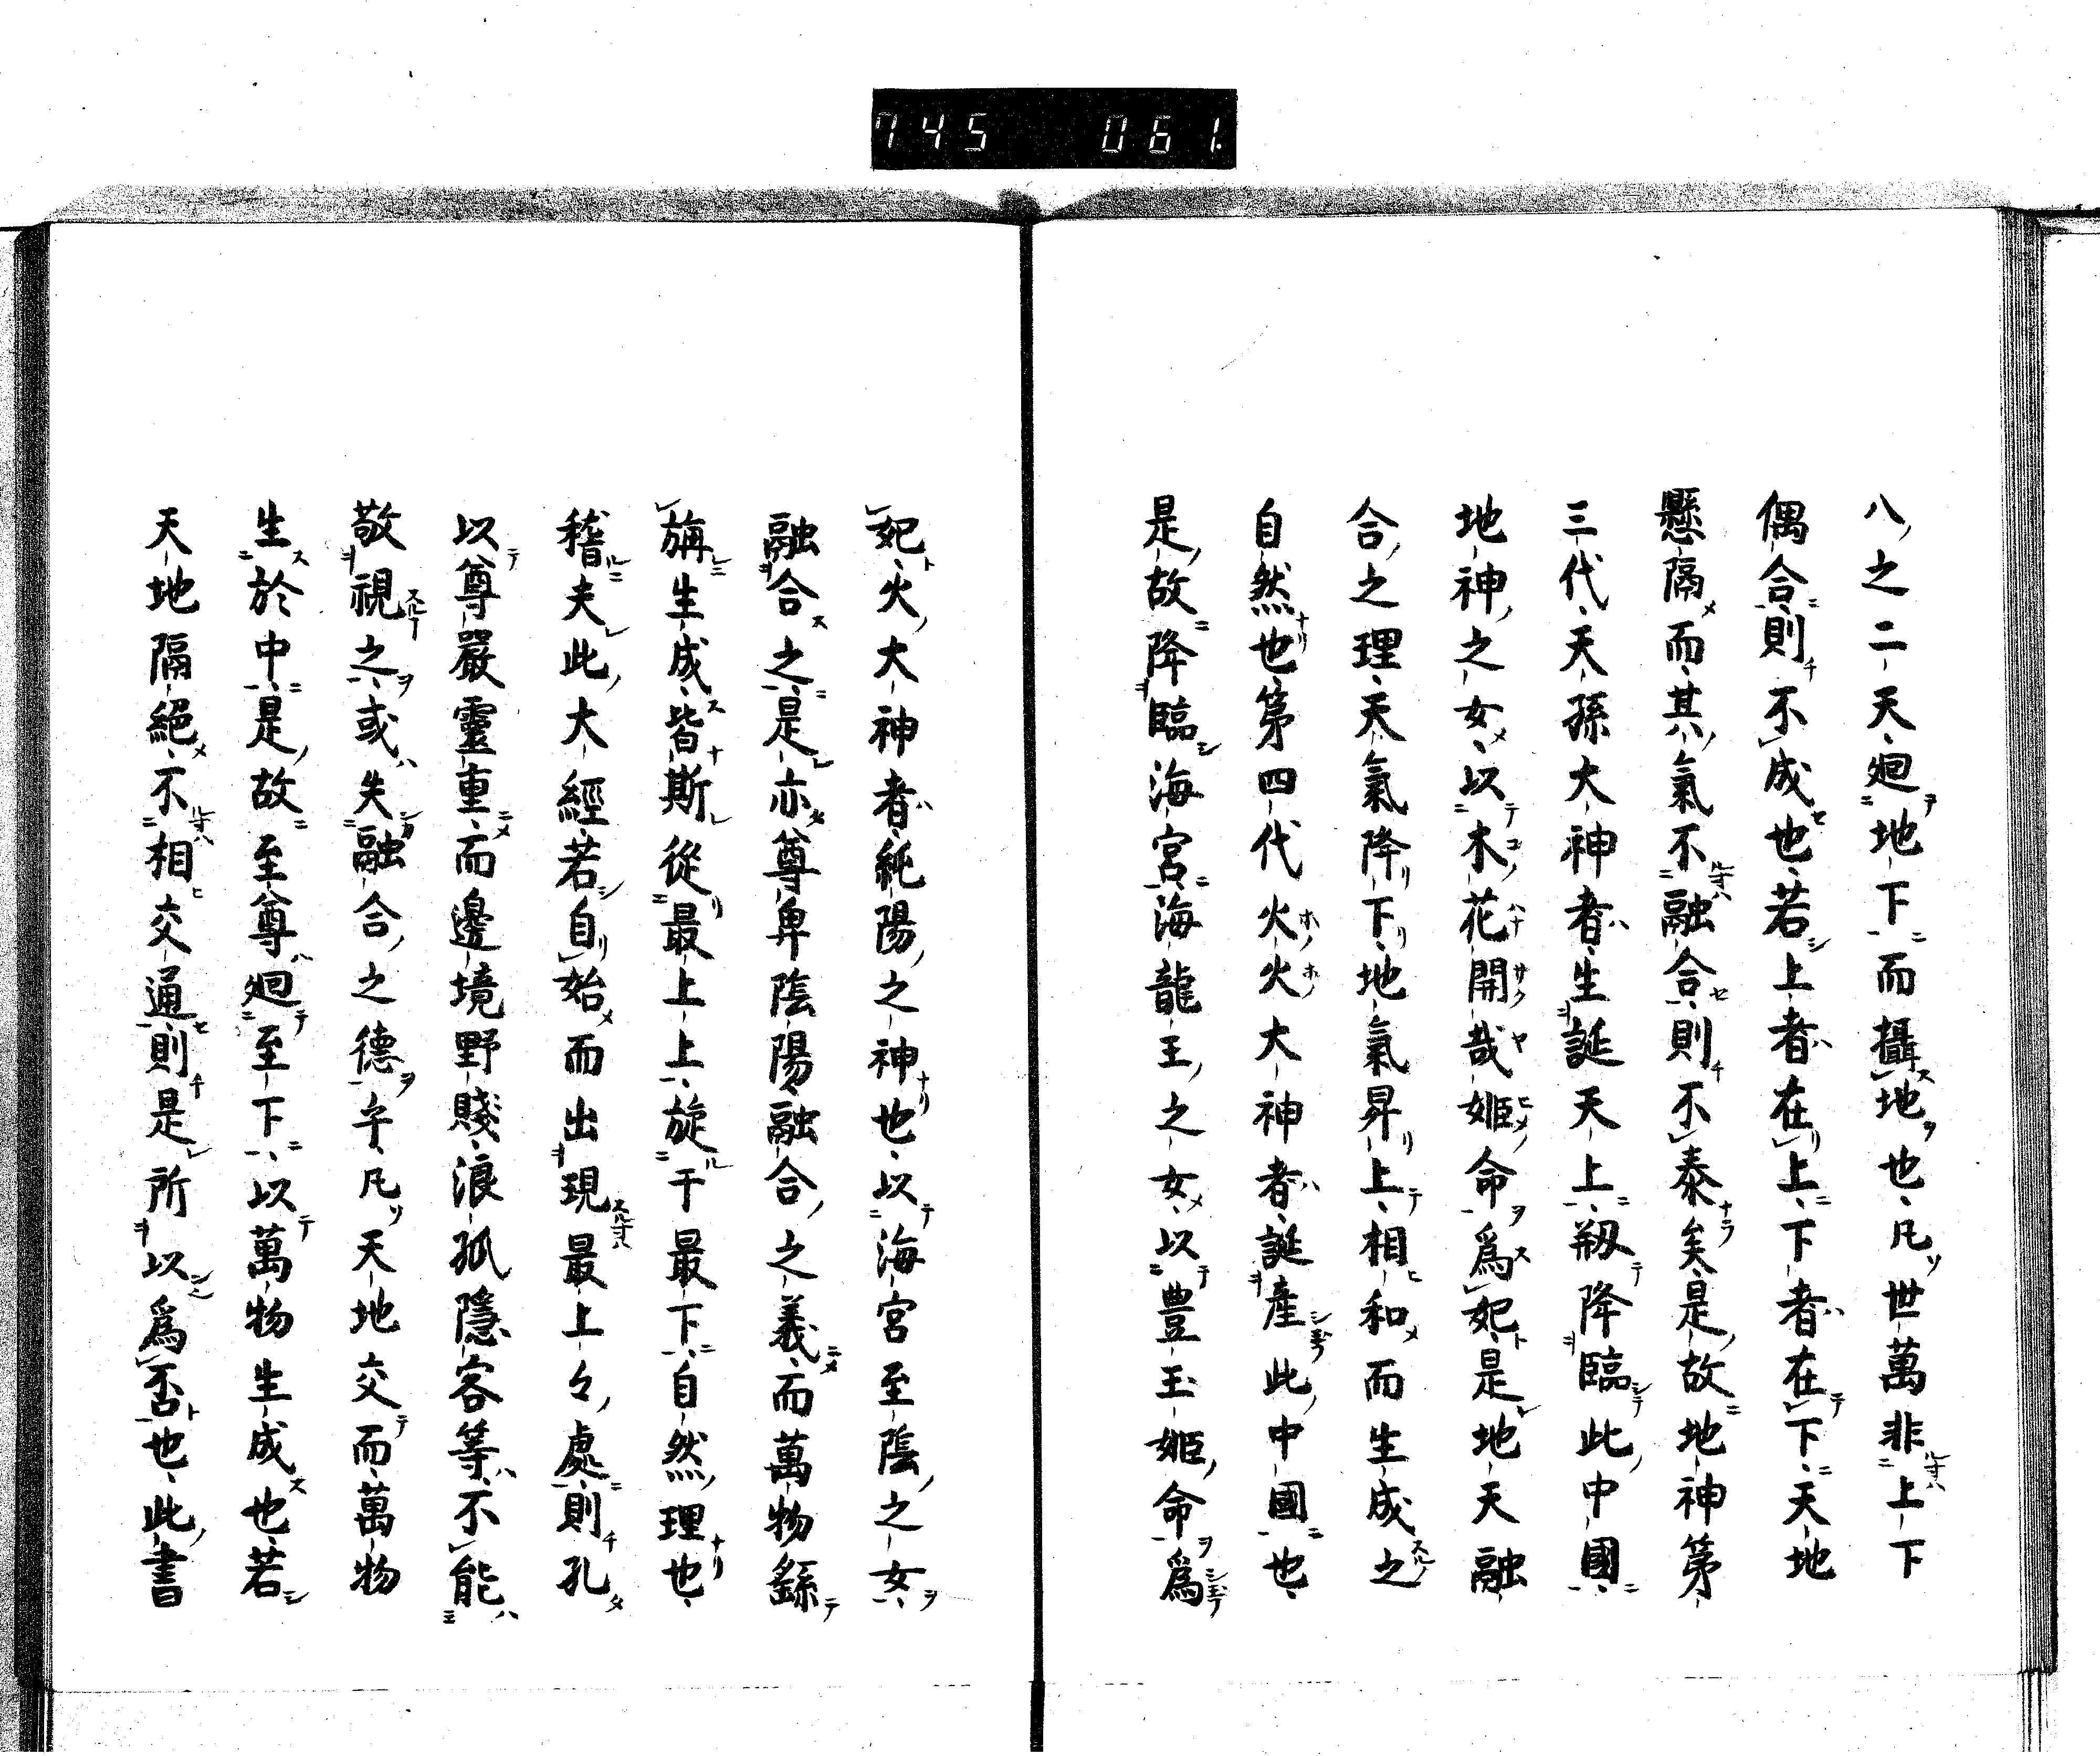 745 061
八之二天廻地下而攝地也凡世萬非上下
偶合則不成也若上者在上下者在下天地
懸隔而其氣不融合則不泰矣是故地神第
三代天孫大神者生誕天上天降臨此中國
地神之女以木花開哉姫命爲妃是地天融
合之理天氣降下地氣昇上相和而生成之
自然也第四代火火大神者誕產此中國也
是故降臨海宮海龍王之女以豊玉姫命爲
妃火大神者純陽之神也以海宮至陰之女
融合之是亦尊卑陰陽融合之義而萬物繇
旃生成皆斯從最上上旋于最下自然理也
稽夫此大經若自始而出現最上々處則孔
以尊嚴靈重而邊境野賤浪孤隱客等不能
敬視之或失融合之德乍凡天地交而萬物
生於中是故至尊廻至下以萬物生成也若
天地隔絕不相交通則是所以爲否也此書